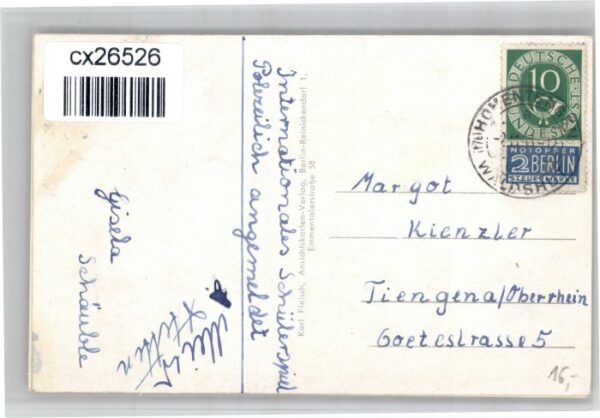 cx26526
Internationales Schülerspiel
Polizeilich angemeldet
Gisela
Schäuble
Karl Fleisch, Ansichtskarten-Verlag, Berlin-Reinickendorf 1,
Emmentalerstraße 58
DEUTSCHE
10
BUNDESPOST
NOTOPFER
2 BERLIN
STEUERMARKE
Margot
Kienzler
Tiengena/Oberrhein
Goetestrasse 5
16,-